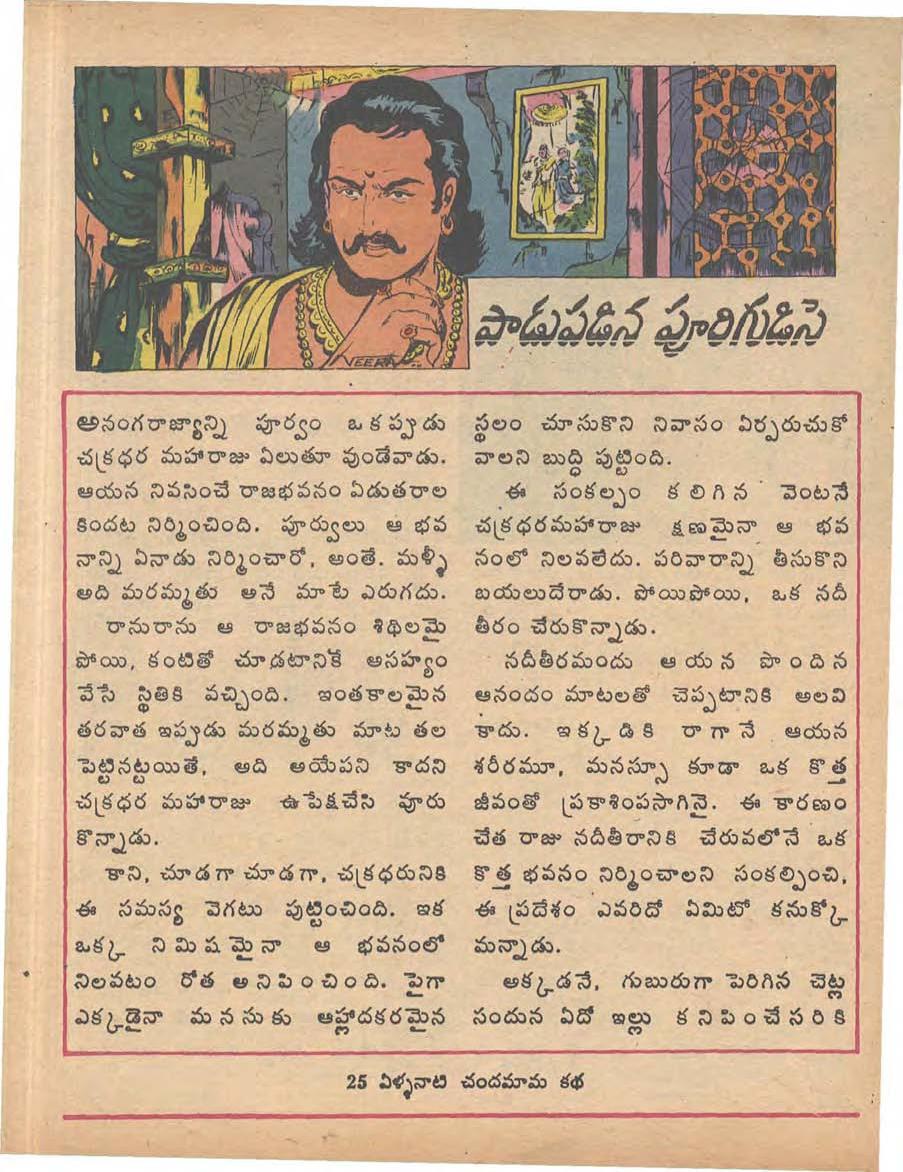 VEERA
పాడుపడిన పూరిగుడిసె
అనంగరాజ్యాన్ని పూర్వం ఒకప్పుడు
చక్రధర మహారాజు ఏలుతూ వుండేవాడు.
ఆయన నివసించే రాజభవనం ఏడుతరాల
కిందట నిర్మించింది. పూర్వులు ఆ భవ
నాన్ని ఏనాడు నిర్మించారో, అంతే. మళ్ళీ
అది మరమ్మతు అనే మాటే ఎరుగదు.
రానురాను ఆ రాజభవనం శిథిలమై
పోయి, కంటితో చూడటానికే అసహ్యం
వేసే స్థితికి వచ్చింది. ఇంతకాలమైన
తరవాత ఇప్పుడు మరమ్మతు మాట తల
పెట్టినట్టయితే, అది అయేపని కాదని
చక్రధర మహారాజు ఉపేక్షచేసి వూరు
కొన్నాడు.
కాని, చూడగా చూడగా, చక్రధరునికి
ఈ సమస్య వెగటు పుట్టించింది. ఇక
ఒక్క నిమిషమైనా ఆ భవనంలో
నిలవటం రోత అనిపించింది. పైగా
ఎక్కడైనా మనసుకు ఆహ్లాదకరమైన
స్థలం చూసుకొని నివాసం ఏర్పరుచుకో
వాలని బుద్ధి పుట్టింది.
ఈ సంకల్పం కలిగిన వెంటనే
చక్రధరమహారాజు క్షణమైనా ఆ భవ
నంలో నిలవలేదు. పరివారాన్ని తీసుకొని
బయలుదేరాడు. పోయిపోయి, ఒక నదీ
తీరం చేరుకొన్నాడు.
నదీతీరమందు ఆయన పొందిన
ఆనందం మాటలతో చెప్పటానికి అలవి
కాదు. ఇక్కడికి రాగానే ఆయన
శరీరమూ, మనస్సూ కూడా ఒక కొత్త
జీవంతో ప్రకాశింపసాగినై. ఈ కారణం
చేత రాజు నదీతీరానికి చేరువలోనే ఒక
కొత్త భవనం నిర్మించాలని సంకల్పించి,
ఈ ప్రదేశం ఎవరిదో ఏమిటో కనుక్కో
మన్నాడు.
అక్కడనే, గుబురుగా పెరిగిన చెట్ల
సందున ఏదో ఇల్లు కనిపించేసరికి
25 ఏళ్ళనాటి చందమామ కథ